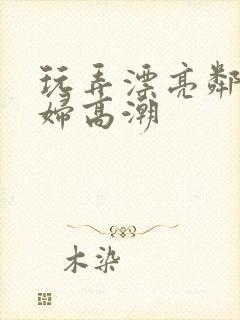 玩弄漂亮鄰
婦高潮
木染